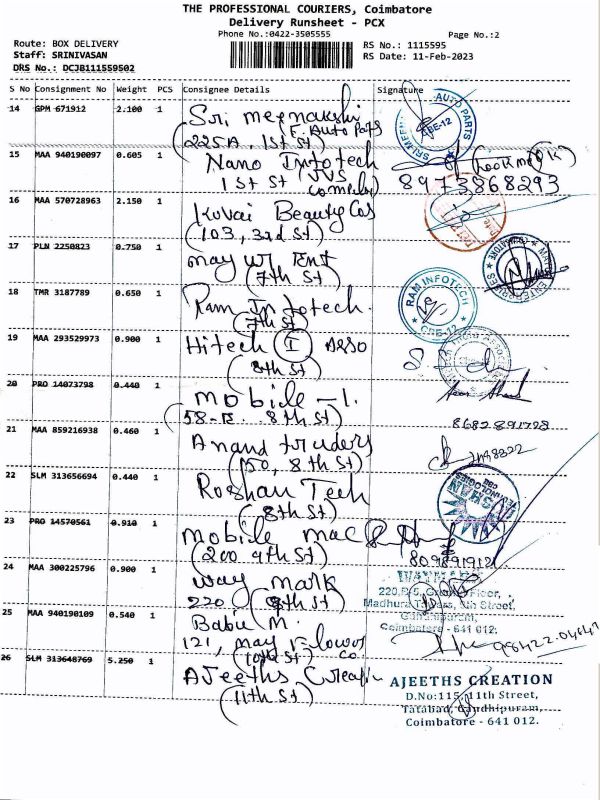 THE PROFESSIONAL COURIERS, Coimbatore
Delivery Runsheet - PCX
Phone No.:0422-3505555 Page No.:2
Route: BOX DELIVERY RS No.: 1115595
Staff: SRINIVASAN RS Date: 11-Feb-2023
DRS No.: DCJB111559502
S No Consignment No Weight PCS Consignee Details Signature
14 GPM 671912 2.100 1 Sri meenakshi
Auto Parts
(225A, 1st St)
15 MAA 940190097 0.605 1 Nano Infotech
1st St
8973868293
16 MAA 570728963 2.150 1 Kovai Beauty Cos
(103, 3rd St)
17 PLN 2250823 0.750 1 may
(7th St)
18 TMR 3187789 0.650 1 Ram Infotech. RAM INFOTECH CBE-12
(7th St)
19 MAA 293529973 0.900 1 Hitech (I) Asso
(8th St)
20 PRO 14073798 0.440 1 mobile - 1.
(58-B 8th St) 8682891728
21 MAA 859216938 0.460 1 Anand traders
(150, 8th St)
22 SLM 313656694 0.440 1 Roshan Tech
(8th St)
23 PRO 14570561 0.910 1 mobile mac
(200 9th St) 8098919121
24 MAA 300225796 0.900 1 way mark WAYMARK
220 (9th St)
Gandhipuram,
Coimbatore - 641 012.
25 MAA 940190109 0.540 1 Babu M.
121, may Flower
(10th St) Co
26 SLM 313648769 5.250 1 AJeeths Creation
(11th St)
AJEETHS CREATION
D.No:115, 11th Street,
Tatabad, Gandhipuram,
Coimbatore - 641 012.